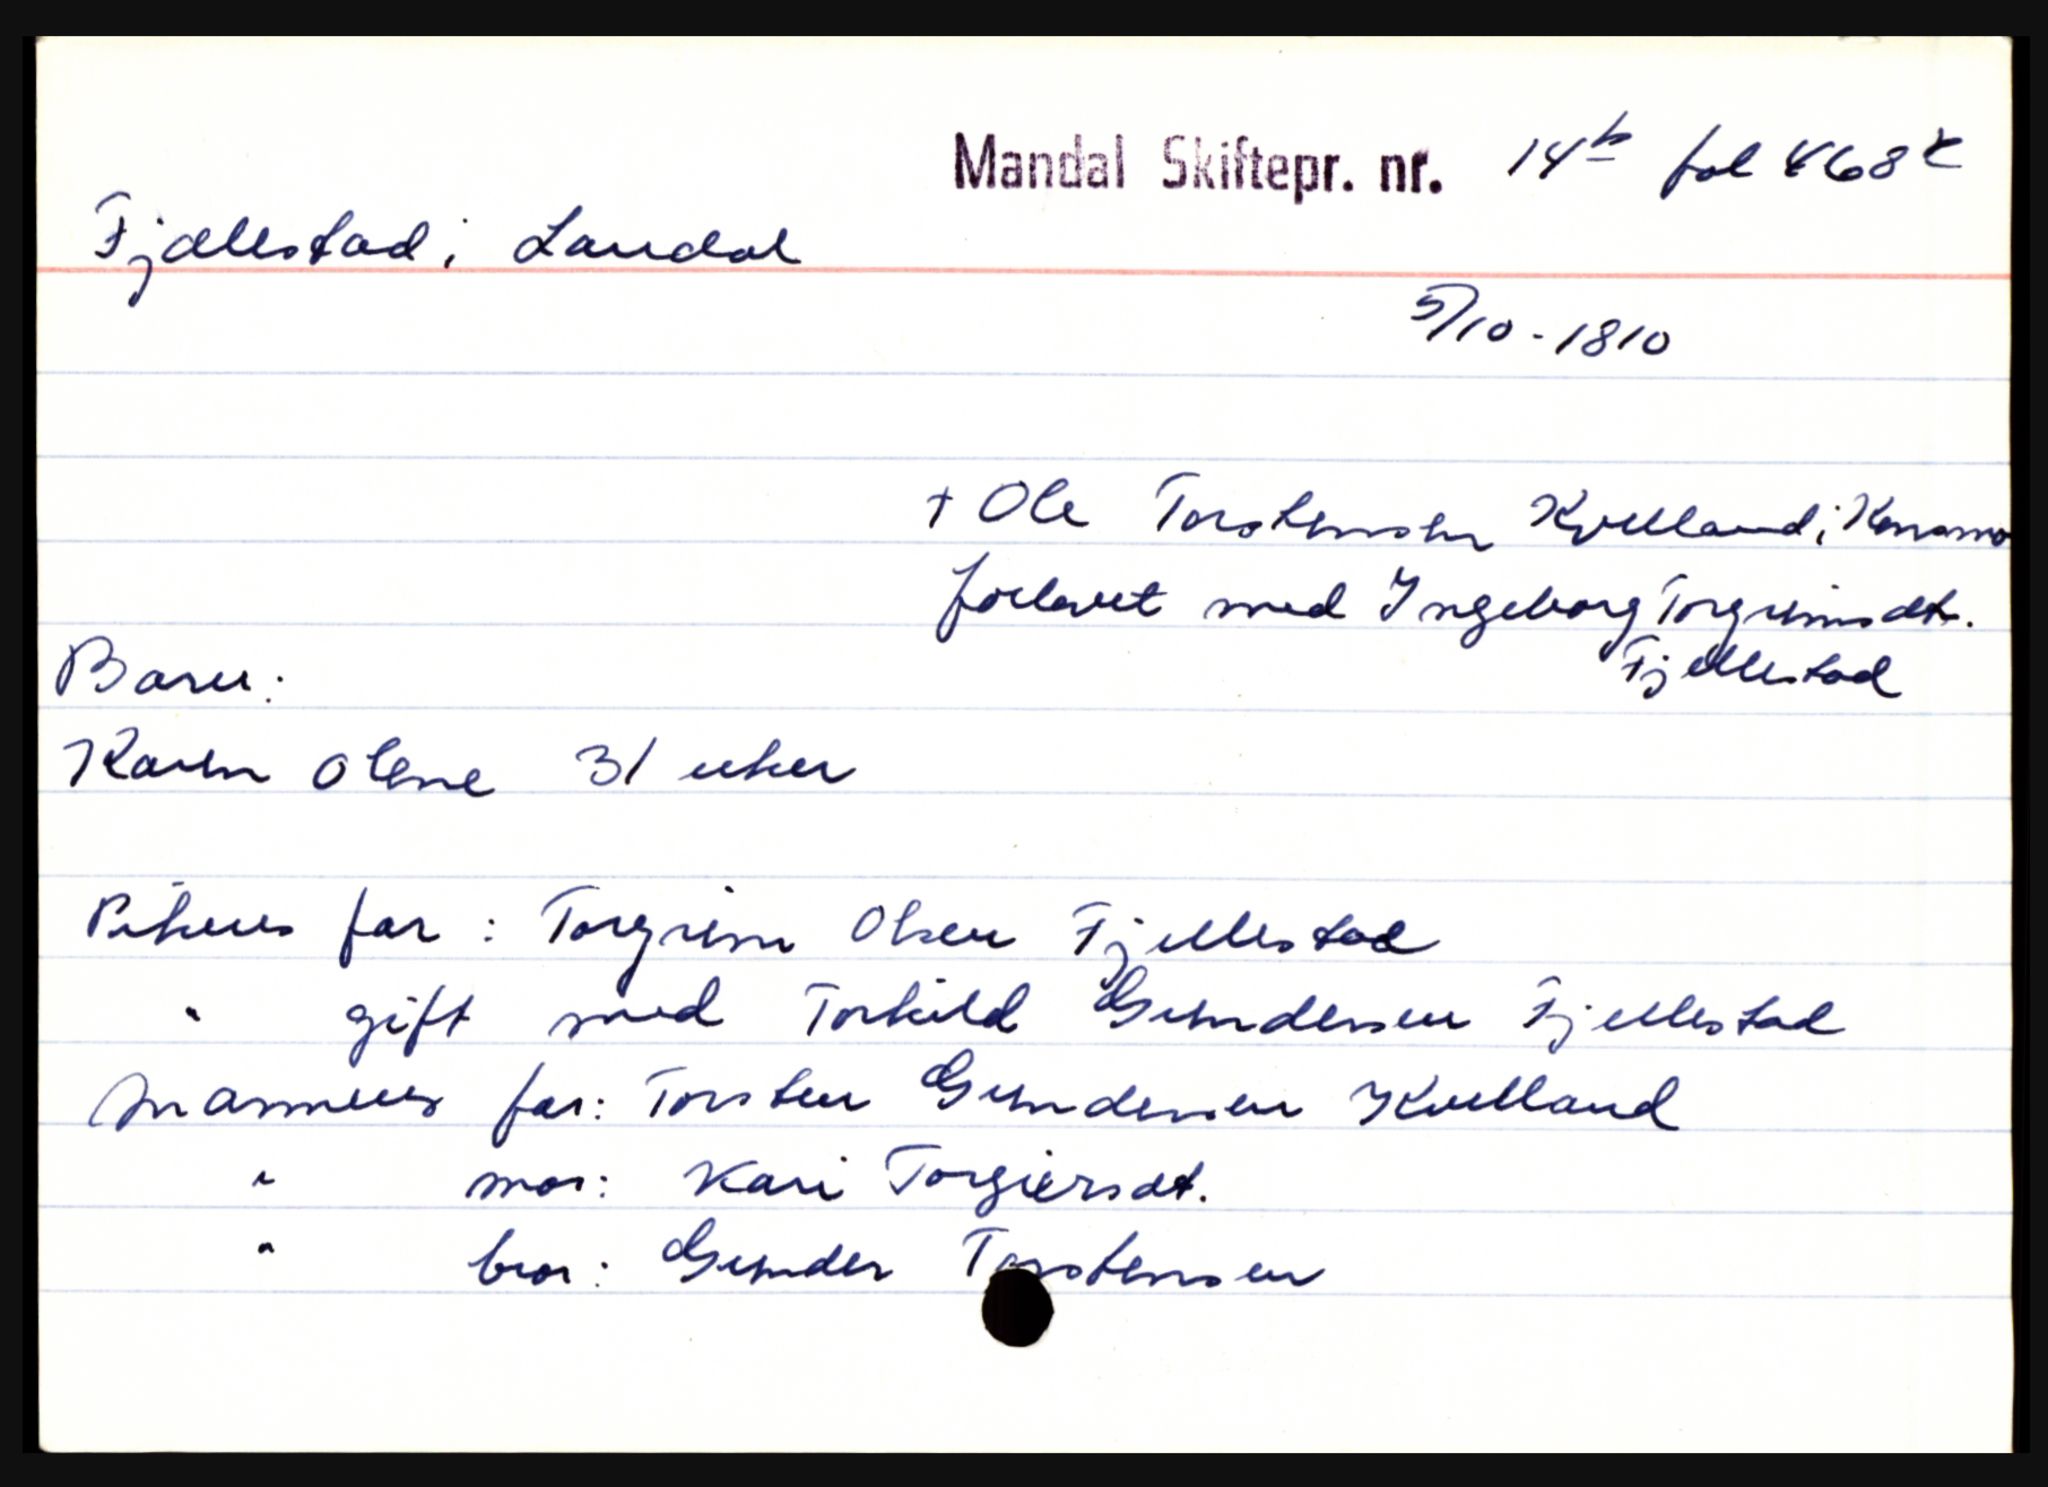 Mandal Skiftepr. nr. 14b fol 468
Fjellestad i Laudal
5/10-1810
† Ole Torstensen Kvelland i Konsmo
forlovet med Ingeborg Torgrimsdt.
Fjellestad
Barn:
Karen Olene 31 uker
Pikens far: Torgrim Olsen Fjellestad
" gift med Torkild Gundersen Fjellestad
Mannens far: Torsten Gundersen Kvelland
" mor: Kari Torgiersdt.
" bror: Gunder Torstensen